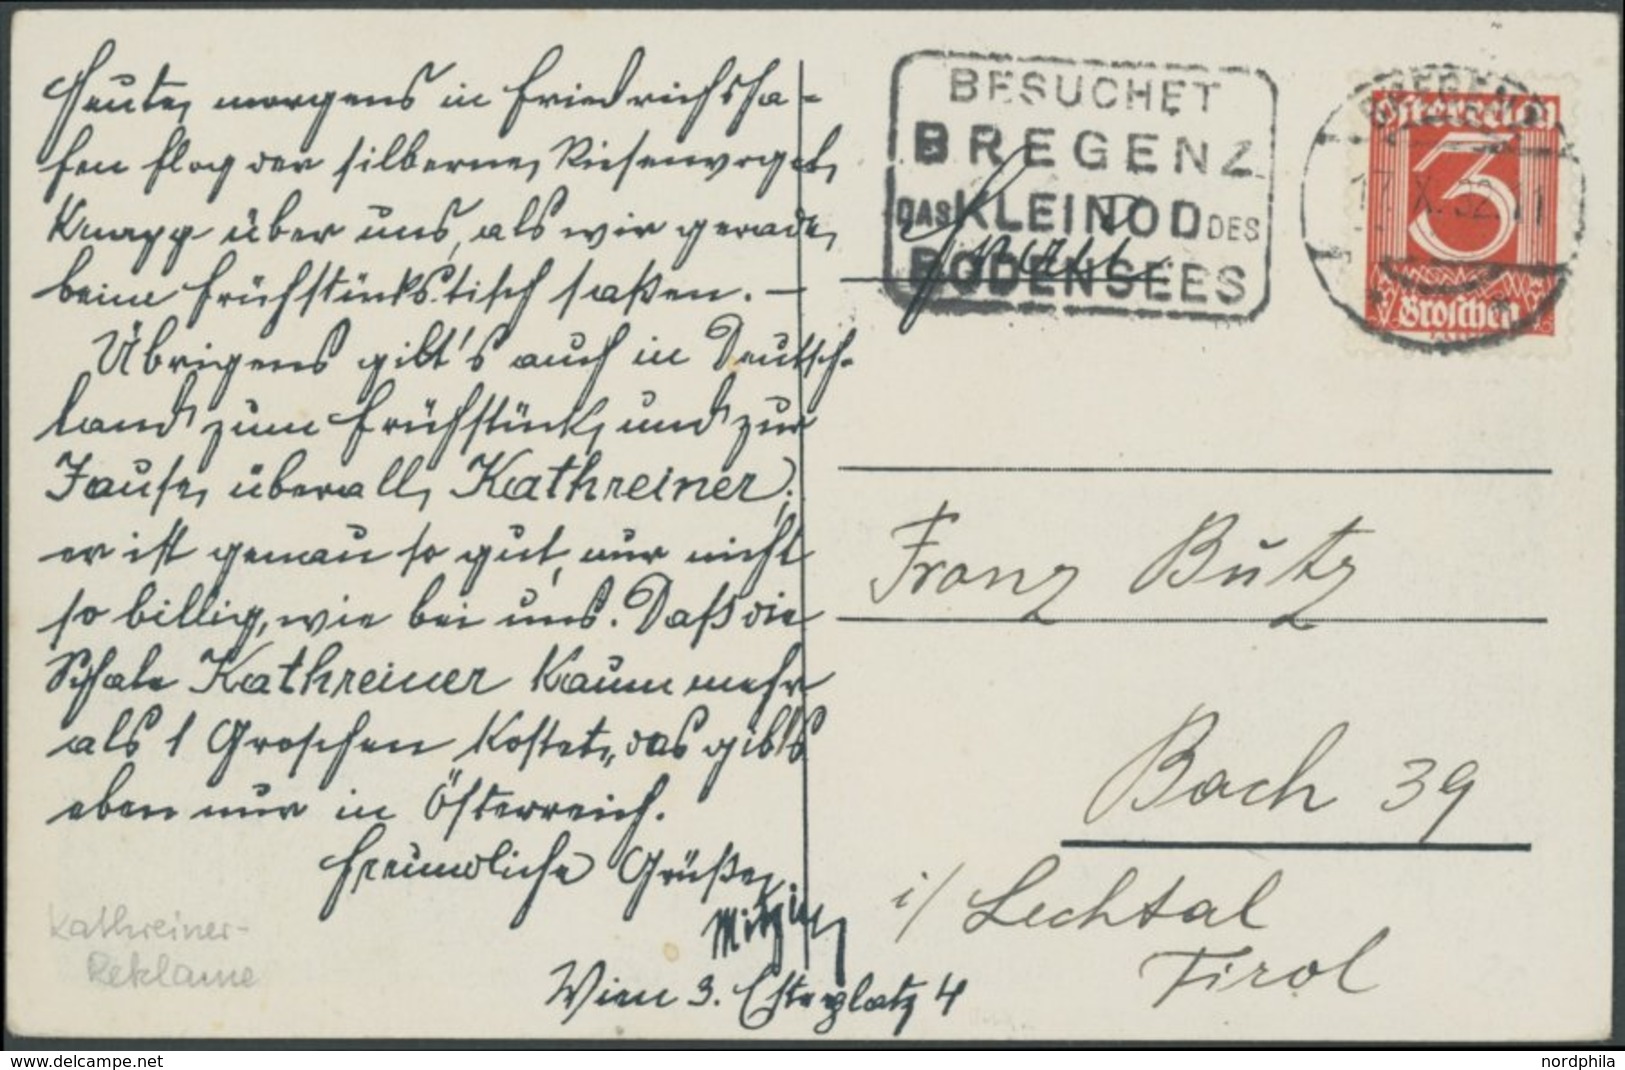 Heute morgens in Friedrichsha-
fen flog der silberne Riesenvogel
knapp über uns, als wir gerade
beim Frühstückstisch saßen. —
Übrigens gibt's auch in Deutsch-
land zum Frühstück und zur
Jause überall Kathreiner;
er ist genau so gut, nur nicht
so billig, wie bei uns. Daß die
Schale Kathreiner kaum mehr
als 1 Groschen kostet, das gibt's
eben nur in Österreich.
Freundliche Grüße
Wien 3. Esteplatz 4
Kathreiner-
Reklame
BESUCHET
BREGENZ
DAS KLEINOD DES
BODENSEES
BREGENZ
17.X.32.11
Österreich
3
Groschen
Franz Butz
Bach 39
i/ Lechtal
Tirol
www.ricardo.ch
nordphila